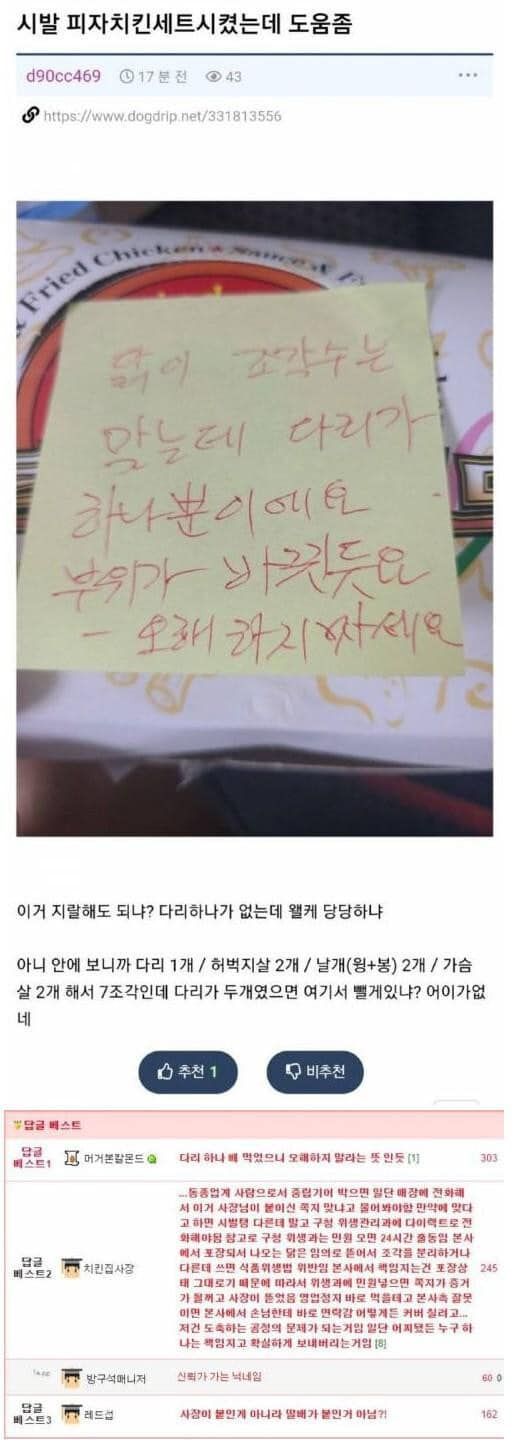 시발 피자치킨세트시켰는데 도움좀
d90cc469 17 분 전 43
https://www.dogdrip.net/331813556
Fried Chicken
닭이 조각수는
맞는데 다리가
하나뿐이에요
부위가 바뀐듯요
- 오해 하지 마세요
이거 지랄해도 되냐? 다리하나가 없는데 왤케 당당하냐
아니 안에 보니까 다리 1개 / 허벅지살 2개 / 날개(윙+봉) 2개 / 가슴
살 2개 해서 7조각인데 다리가 두개였으면 여기서 뺄게있냐? 어이가없
네
추천 1 비추천
답글 베스트
답글 베스트1 머거본칼몬드 다리 하나 빼 먹었으니 오해하지 말라는 뜻 인듯 [1] 303
...동종업계 사람으로서 중립기어 박으면 일단 매장에 전화해
서 이거 사장님이 붙이신 쪽지 맞냐고 물어봐야함 만약에 맞다
고 하면 시벌탱 다른데 말고 구청 위생관리과에 다이렉트로 전
화해야됨 참고로 구청 위생과는 민원 오면 24시간 출동임 본사
에서 포장되서 나오는 닭은 임의로 뜯어서 조각을 분리하거나
답글 베스트2 치킨집사장 다른데 쓰면 식품위생법 위반임 본사에서 책임지는건 포장상 245
태 그대로기 때문에 따라서 위생과에 민원넣으면 쪽지가 증거
가 될꺼고 사장이 뜯었음 영업정지 바로 먹을테고 본사측 잘못
이면 본사에서 손님한테 바로 연락감 어떻게든 커버 칠려고...
저건 도축하는 공정의 문제가 되는거임 일단 어찌됐든 누구 하
나는 책임지고 확실하게 보내버리는거임 [8]
방구석매니저 신뢰가 가는 닉네임 60 0
답글 베스트3 레드섭 사장이 붙인게 아니라 딸배가 붙인거 아님?! 162